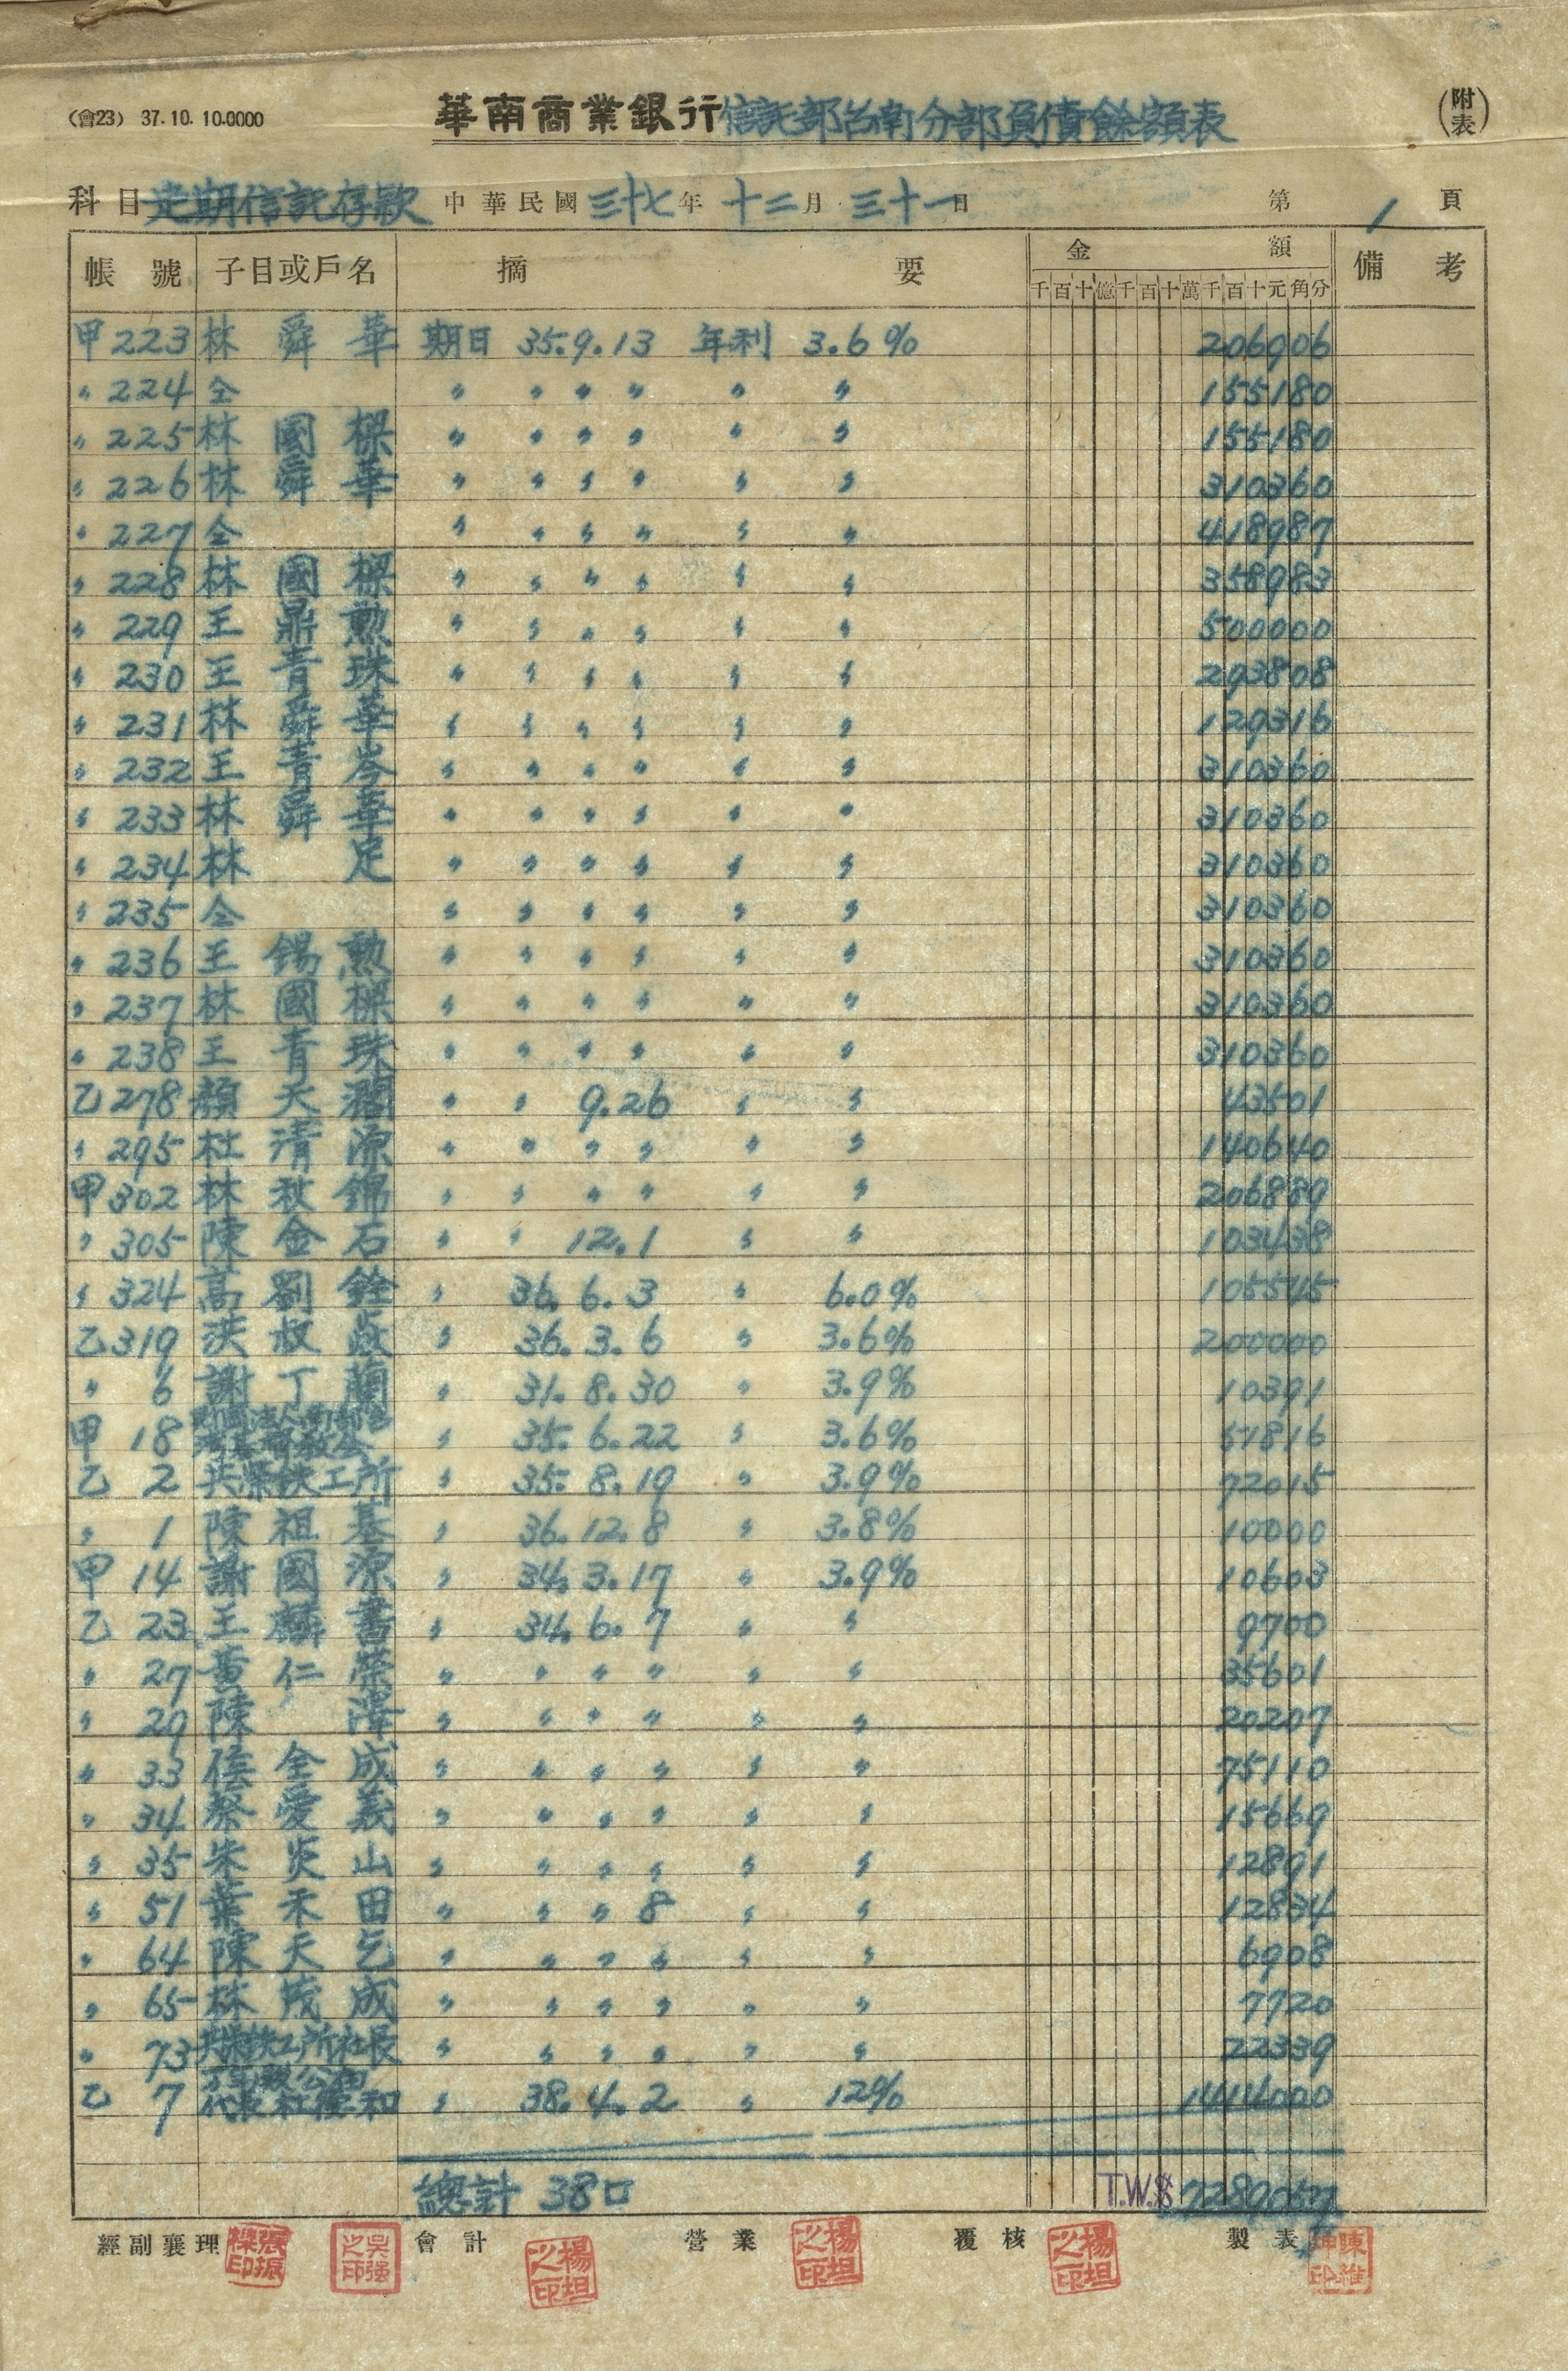 (會23) 37.10.10.0000 華南商業銀行信託部台南分部負債餘額表 (附表)
科目 定期信託存款 中華民國三十七年十二月三十一日 第1頁
帳號 子目或戶名 摘要 金額 備考
千百十億千百十萬千百十元角分
甲223 林舜華 期日 35.9.13 年利 3.6% 206906
〃224 仝 〃 〃 〃 〃 〃 〃 155180
〃225 林國樑 〃 〃 〃 〃 〃 〃 155180
〃226 林舜華 〃 〃 〃 〃 〃 〃 310360
〃227 仝 〃 〃 〃 〃 〃 〃 418987
〃228 林國樑 〃 〃 〃 〃 〃 〃 358983
〃229 王鼎勲 〃 〃 〃 〃 〃 〃 500000
〃230 王青珠 〃 〃 〃 〃 〃 〃 293808
〃231 林舜華 〃 〃 〃 〃 〃 〃 129316
〃232 王青岑 〃 〃 〃 〃 〃 〃 310360
〃233 林舜華 〃 〃 〃 〃 〃 〃 310360
〃234 林足 〃 〃 〃 〃 〃 〃 310360
〃235 仝 〃 〃 〃 〃 〃 〃 310360
〃236 王錫勲 〃 〃 〃 〃 〃 〃 310360
〃237 林國樑 〃 〃 〃 〃 〃 〃 310360
〃238 王青珠 〃 〃 〃 〃 〃 〃 310360
乙278 顏天 〃 〃 9.26 〃 〃 43501
〃295 杜清源 〃 〃 〃 〃 〃 〃 140640
甲302 林秋錦 〃 〃 〃 〃 〃 〃 206889
〃305 陳金石 〃 〃 12.1 〃 〃 103438
〃324 高劉銓 〃 36.6.3 〃 6.0% 105545
乙319 洪叔 〃 36.3.6 〃 3.6% 200000
〃6 謝丁蘭 〃 31.8.30 〃 3.9% 10391
甲18 財團法人南部台
灣基督教會 〃 35.6.22 〃 3.6% 51816
乙2 共榮鉄工所 〃 35.8.19 〃 3.9% 72015
〃1 陳祖基 〃 36.12.8 〃 3.8% 10000
甲14 謝國源 〃 34.3.17 〃 3.9% 10603
乙23 王麟書 〃 34.6.7 〃 〃 9700
〃27 黃仁榮 〃 〃 〃 〃 〃 〃 35601
〃29 陳澤 〃 〃 〃 〃 〃 〃 20207
〃33 侯全成 〃 〃 〃 〃 〃 〃 75110
〃34 蔡愛義 〃 〃 〃 〃 〃 〃 15669
〃35 朱炎山 〃 〃 〃 〃 〃 〃 12891
〃51 葉禾田 〃 〃 〃 8 〃 〃 12834
〃64 陳天乞 〃 〃 〃 〃 〃 〃 6908
〃65 林茂成 〃 〃 〃 〃 〃 〃 7720
〃73 共榮鉄工所社長 〃 〃 〃 〃 〃 〃 22339
乙7 代表杜 和 〃 38.4.2 〃 12% 1414000
總計 38口 T.W.$ 7289057
經副襄理 張振樑印 吳強之印 會計 楊坦之印 營業 楊坦之印 覆核 楊坦之印 製表 陳維坤印